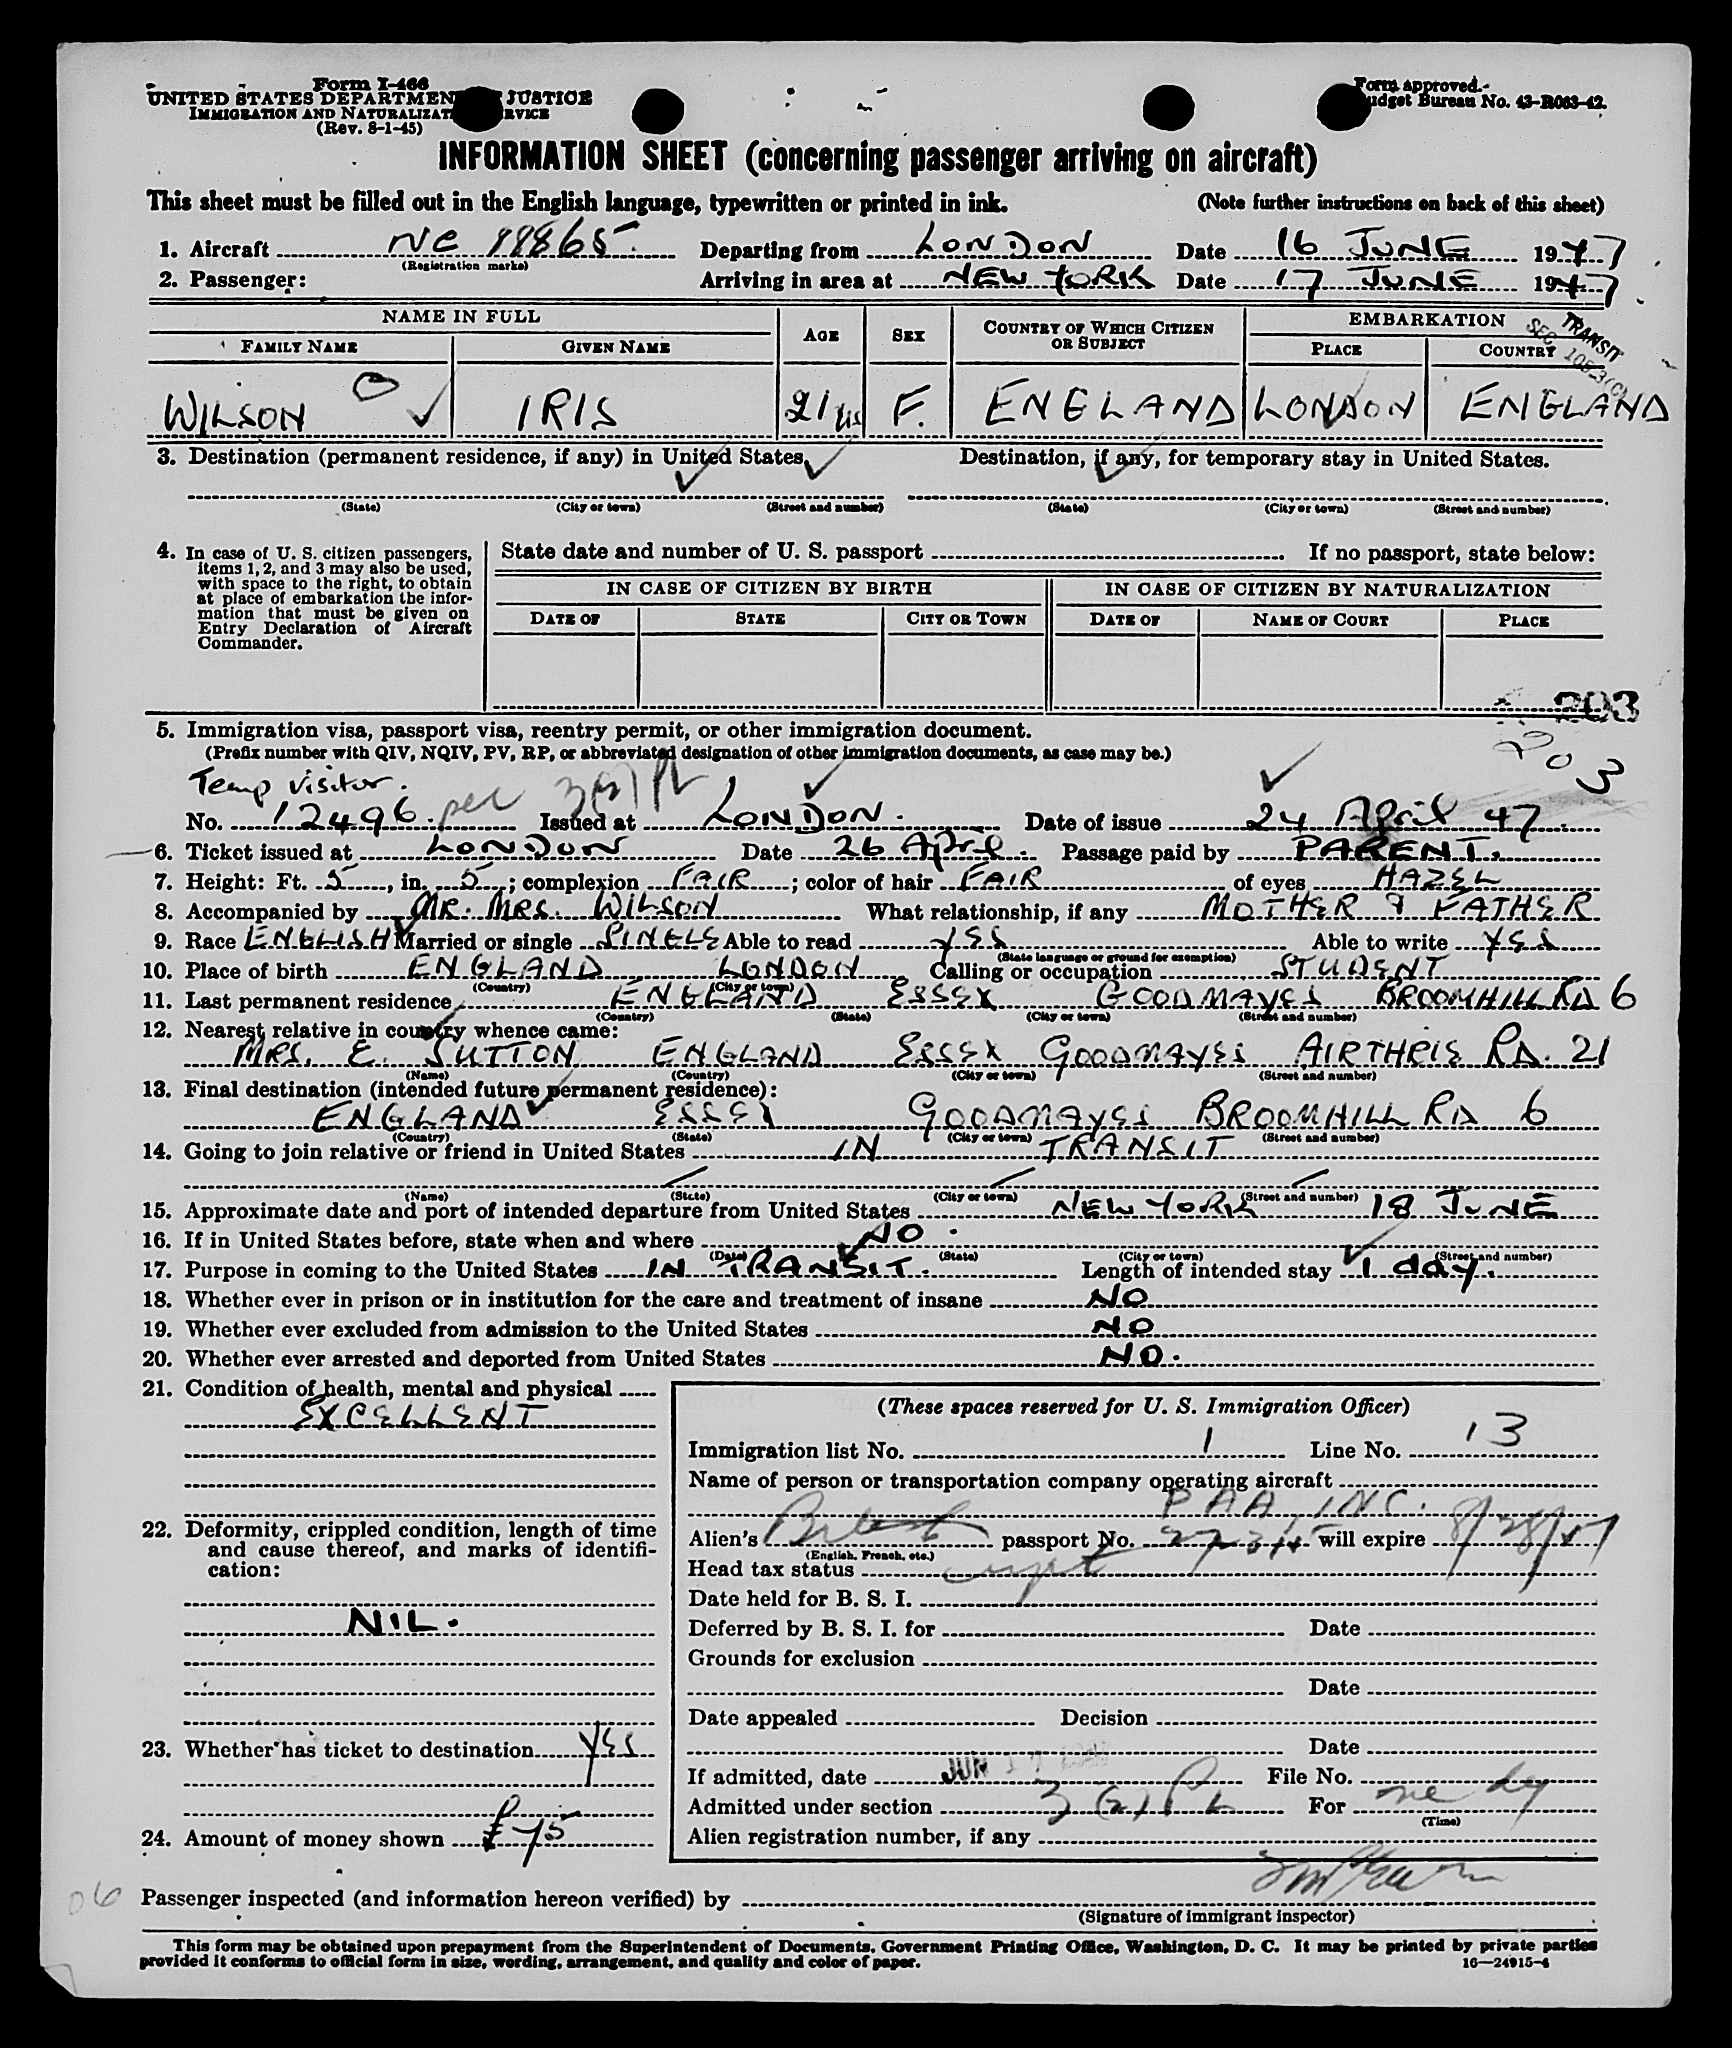 Form I-466
UNITED STATES DEPARTMENT JUSTICE
IMMIGRATION AND NATURALIZAT RVICE
(Rev. 8-1-45)
Form approved.
udget Bureau No. 43-R063-42.
INFORMATION SHEET (concerning passenger arriving on aircraft)
This sheet must be filled out in the English language, typewritten or printed in ink. (Note further instructions on back of this sheet)
1. Aircraft NC 88865. Departing from LONDON Date 16 JUNE 1947
(Registration marks)
2. Passenger: Arriving in area at NEW YORK Date 17 JUNE 1947
NAME IN FULL AGE SEX COUNTRY OF WHICH CITIZEN OR SUBJECT EMBARKATION
FAMILY NAME GIVEN NAME PLACE COUNTRY
TRANSIT
WILSON IRIS 21 yrs F. ENGLAND LONDON ENGLAND
3. Destination (permanent residence, if any) in United States. Destination, if any, for temporary stay in United States.
(State) (City or town) (Street and number) (State) (City or town) (Street and number)
4. In case of U. S. citizen passengers,
items 1, 2, and 3 may also be used,
with space to the right, to obtain
at place of embarkation the infor-
mation that must be given on
Entry Declaration of Aircraft
Commander.
State date and number of U. S. passport If no passport, state below:
IN CASE OF CITIZEN BY BIRTH IN CASE OF CITIZEN BY NATURALIZATION
DATE OF STATE CITY OR TOWN DATE OF NAME OF COURT PLACE
203
203
5. Immigration visa, passport visa, reentry permit, or other immigration document.
(Prefix number with QIV, NQIV, PV, RP, or abbreviated designation of other immigration documents, as case may be.)
Temp Visitor.
No. 12496. per 3(2) PL Issued at LONDON. Date of issue 24 April 47.
6. Ticket issued at LONDON Date 26 April. Passage paid by PARENT.
7. Height: Ft. 5, in. 5; complexion FAIR; color of hair FAIR of eyes HAZEL
8. Accompanied by MR. MRS. WILSON What relationship, if any MOTHER & FATHER
9. Race ENGLISH Married or single SINGLE Able to read YES Able to write YES
(State language or ground for exemption)
10. Place of birth ENGLAND LONDON Calling or occupation STUDENT
(Country) (City or town)
11. Last permanent residence ENGLAND ESSEX GOODMAYES BROOMHILL RD 6
(Country) (State) (City or town) (Street and number)
12. Nearest relative in country whence came:
MRS. E. SUTTON ENGLAND ESSEX GOODMAYES AIRTHRIE RD. 21
(Name) (Country) (City or town) (Street and number)
13. Final destination (intended future permanent residence):
ENGLAND ESSEX GOODMAYES BROOMHILL RD 6
(Country) (State) (City or town) (Street and number)
14. Going to join relative or friend in United States IN TRANSIT
(Name) (State) (City or town) (Street and number)
15. Approximate date and port of intended departure from United States NEW YORK 18 JUNE
16. If in United States before, state when and where NO.
(Date) (State) (City or town) (Street and number)
17. Purpose in coming to the United States IN TRANSIT. Length of intended stay 1 day.
18. Whether ever in prison or in institution for the care and treatment of insane NO
19. Whether ever excluded from admission to the United States NO
20. Whether ever arrested and deported from United States NO.
21. Condition of health, mental and physical
EXCELLENT
22. Deformity, crippled condition, length of time
and cause thereof, and marks of identifi-
cation:
NIL.
23. Whether has ticket to destination YES
24. Amount of money shown £75
(These spaces reserved for U. S. Immigration Officer)
Immigration list No. 1 Line No. 13
Name of person or transportation company operating aircraft
PAA, INC.
Alien's British passport No. will expire
(English, French, etc.)
Head tax status
Date held for B. S. I.
Deferred by B. S. I. for Date
Grounds for exclusion
Date
Date appealed Decision
Date
If admitted, date JUN 17 File No.
Admitted under section 3(2) PL For one day
(Time)
Alien registration number, if any
06
Passenger inspected (and information hereon verified) by
(Signature of immigrant inspector)
This form may be obtained upon prepayment from the Superintendent of Documents, Government Printing Office, Washington, D. C. It may be printed by private parties
provided it conforms to official form in size, wording, arrangement, and quality and color of paper. 16—24915-4